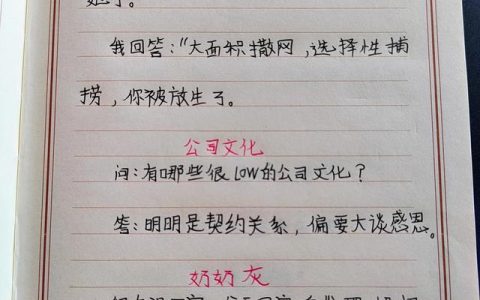 她了。
我回答:"大面积撒网,选择性捕
捞,你被放生了。
公司文化
问:有哪些很LOW的公司文化?
答:明明是契约关系,偏要大谈感恩。
奶奶灰